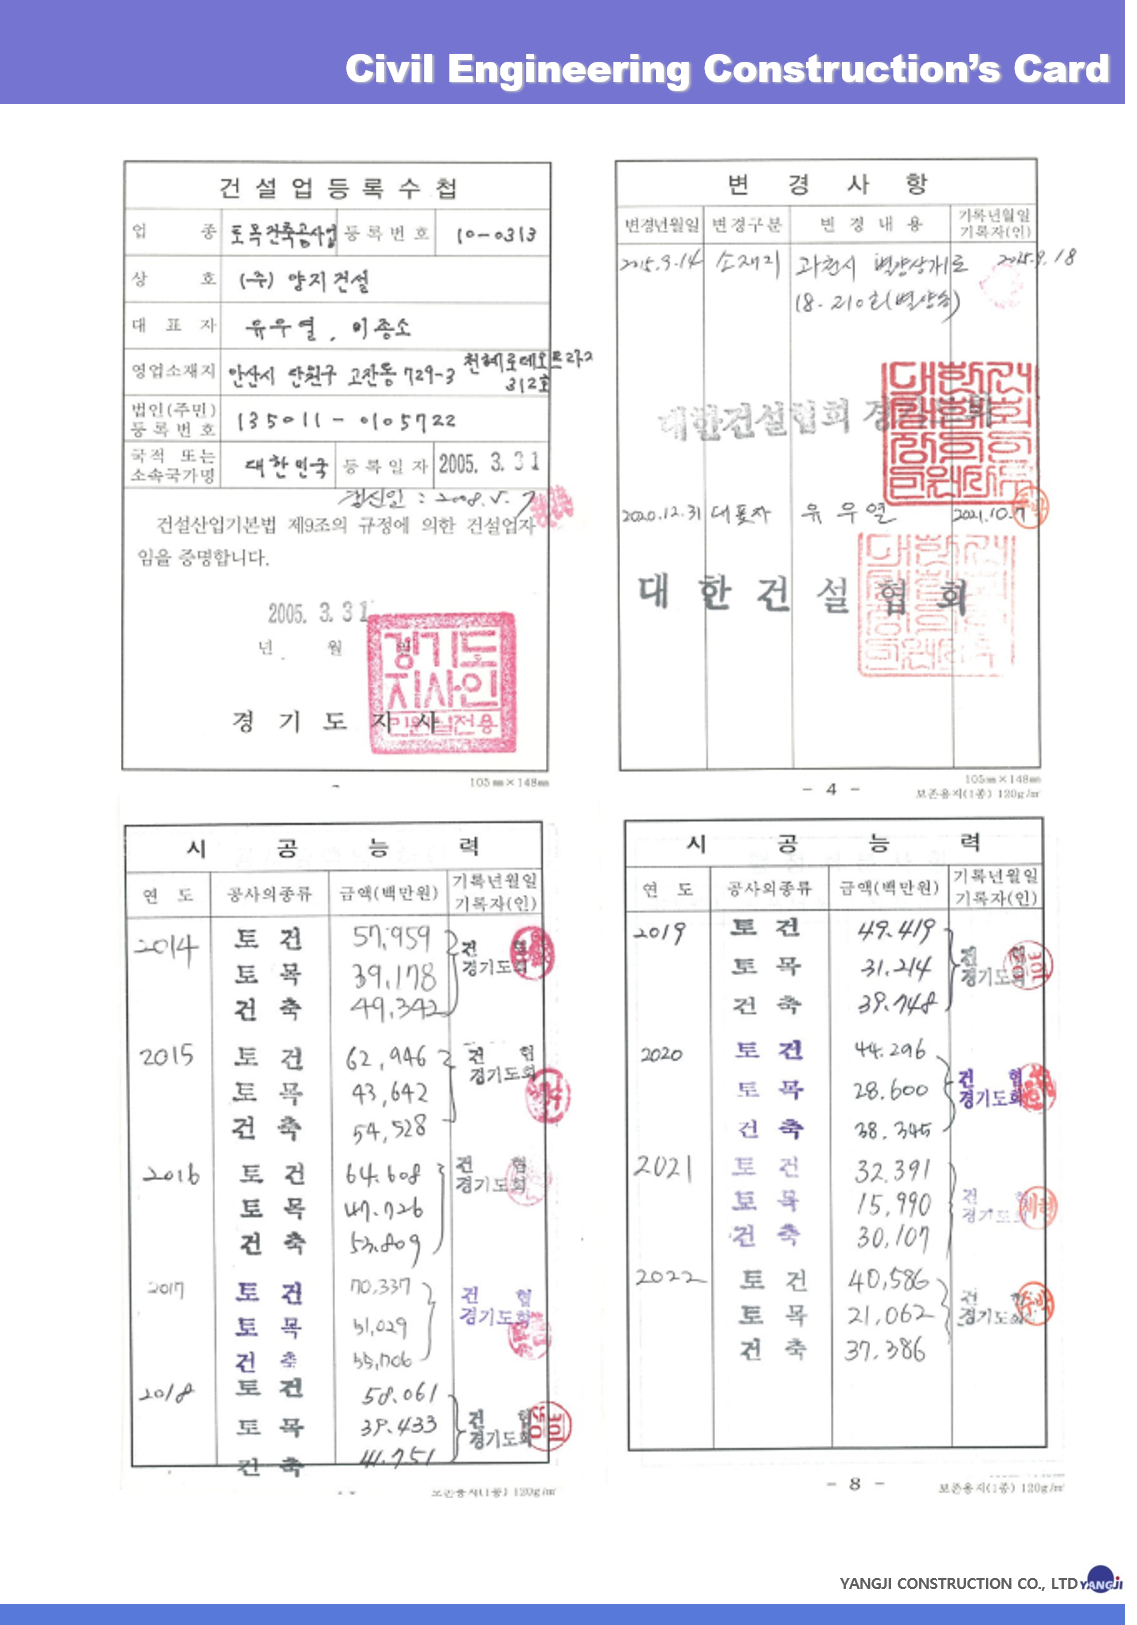 Civil Engineering Construction's Card
건설업등록수첩
업 종 토목건축공사업 등록번호 10-0313
상 호 (주) 양지건설
대 표 자 유우열, 이종소
영업소재지 안산시 단원구 고잔동 729-3 천혜로데오프라자 312호
법인(주민)
등록번호 135011-0105722
국적 또는
소속국가명 대한민국 등록일자 2005. 3. 31
갱신일 : 2008. 5. 7
건설산업기본법 제9조의 규정에 의한 건설업자
임을 증명합니다.
2005. 3. 31
년 월 일
경 기 도 지 사
경기도
지사인
민원실전용
105㎜×148㎜
변 경 사 항
변경년월일 변경구분 변 경 내 용 기록년월일
기록자(인)
2015.9.14 소재지 과천시 별양상가1로 2015.9.18
18-210호(별양동)
대한건설협회 경기도회
2020.12.31 대표자 유우열 2021.10.7
대 한 건 설 협 회
105㎜×148㎜
- 4 - 보존용지(1종) 120g/㎡
시 공 능 력
연 도 공사의종류 금액(백만원) 기록년월일
기록자(인)
2014 토 건 57,959 건 협
토 목 39,178 경기도회
건 축 49,342
2015 토 건 62,946 건 협
토 목 43,642 경기도회
건 축 54,528
2016 토 건 64.608 건 협
토 목 47.726 경기도회
건 축 53.809
2017 토 건 70,337 건 협
토 목 51,029 경기도회
건 축 55,706
2018 토 건 58.061
토 목 39.433 건 협
건 축 41.751 경기도회
보존용지(1종) 120g/㎡
시 공 능 력
연 도 공사의종류 금액(백만원) 기록년월일
기록자(인)
2019 토 건 49.419 건 협
토 목 31.214 경기도회
건 축 39.748
2020 토 건 44.296
토 목 28.600 건 협
건 축 38.345 경기도회
2021 토 건 32.391
토 목 15,990 건 협
건 축 30,107 경기도회
2022 토 건 40,586 건 협
토 목 21,062 경기도회
건 축 37.386
- 8 - 보존용지(1종) 120g/㎡
YANGJI CONSTRUCTION CO., LTD YANGJI